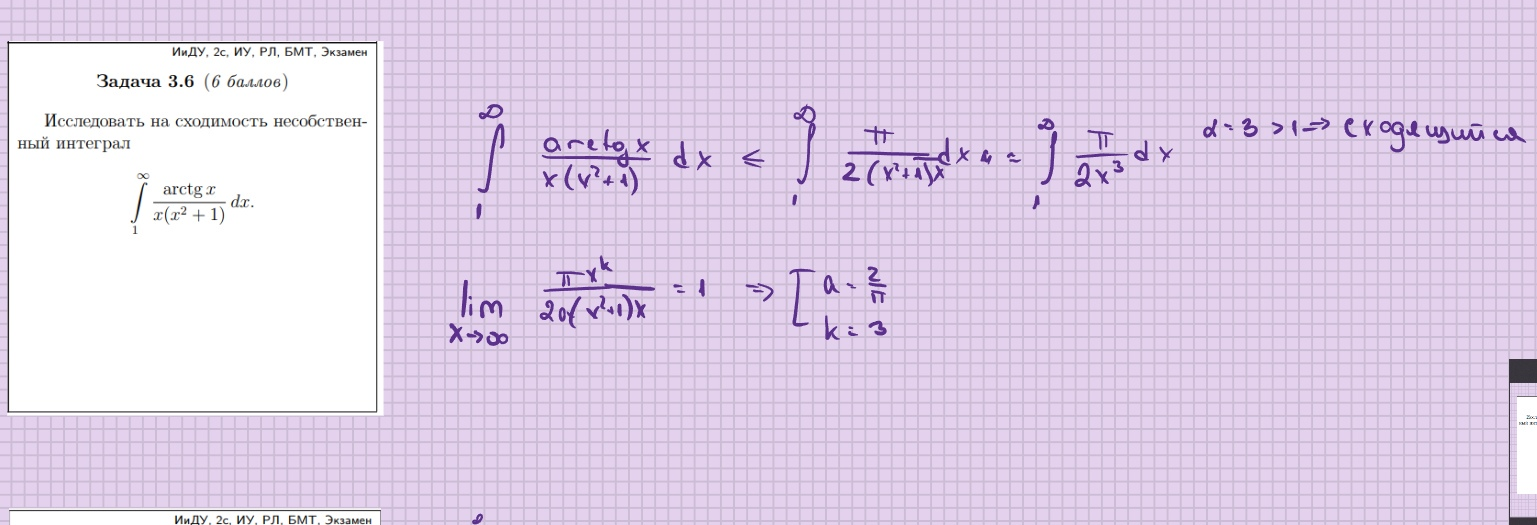 ИиДУ, 2с, ИУ, РЛ, БМТ, Экзамен
Задача 3.6 (6 баллов)
Исследовать на сходимость несобствен-
ный интеграл
∫₁^∞ arctg x / x(x² + 1) dx.
∫₁^∞ arctg x / x(x²+1) dx ≤ ∫₁^∞ π / 2(x²+1)x dx = ∫₁^∞ π / 2x³ dx α = 3 > 1 ⇒ сходящийся
lim x→∞ πx^k / 2a(x²+1)x = 1 ⇒ [ a = 2/π
k = 3
ИиДУ, 2с, ИУ, РЛ, БМТ, Экзамен